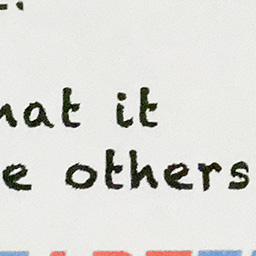 hat it
e others